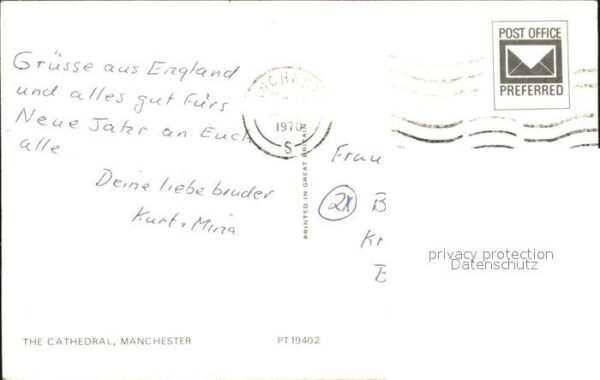 Grüsse aus England
und alles gut fürs
Neue Jahr an Euch
alle.
Deine liebe bruder
Kurt + Mina
THE CATHEDRAL, MANCHESTER
PT19402
PRINTED IN GREAT BRITAIN
1970
S
POST OFFICE
PREFERRED
Frau
2
B
Kr
B
privacy protection
Datenschutz